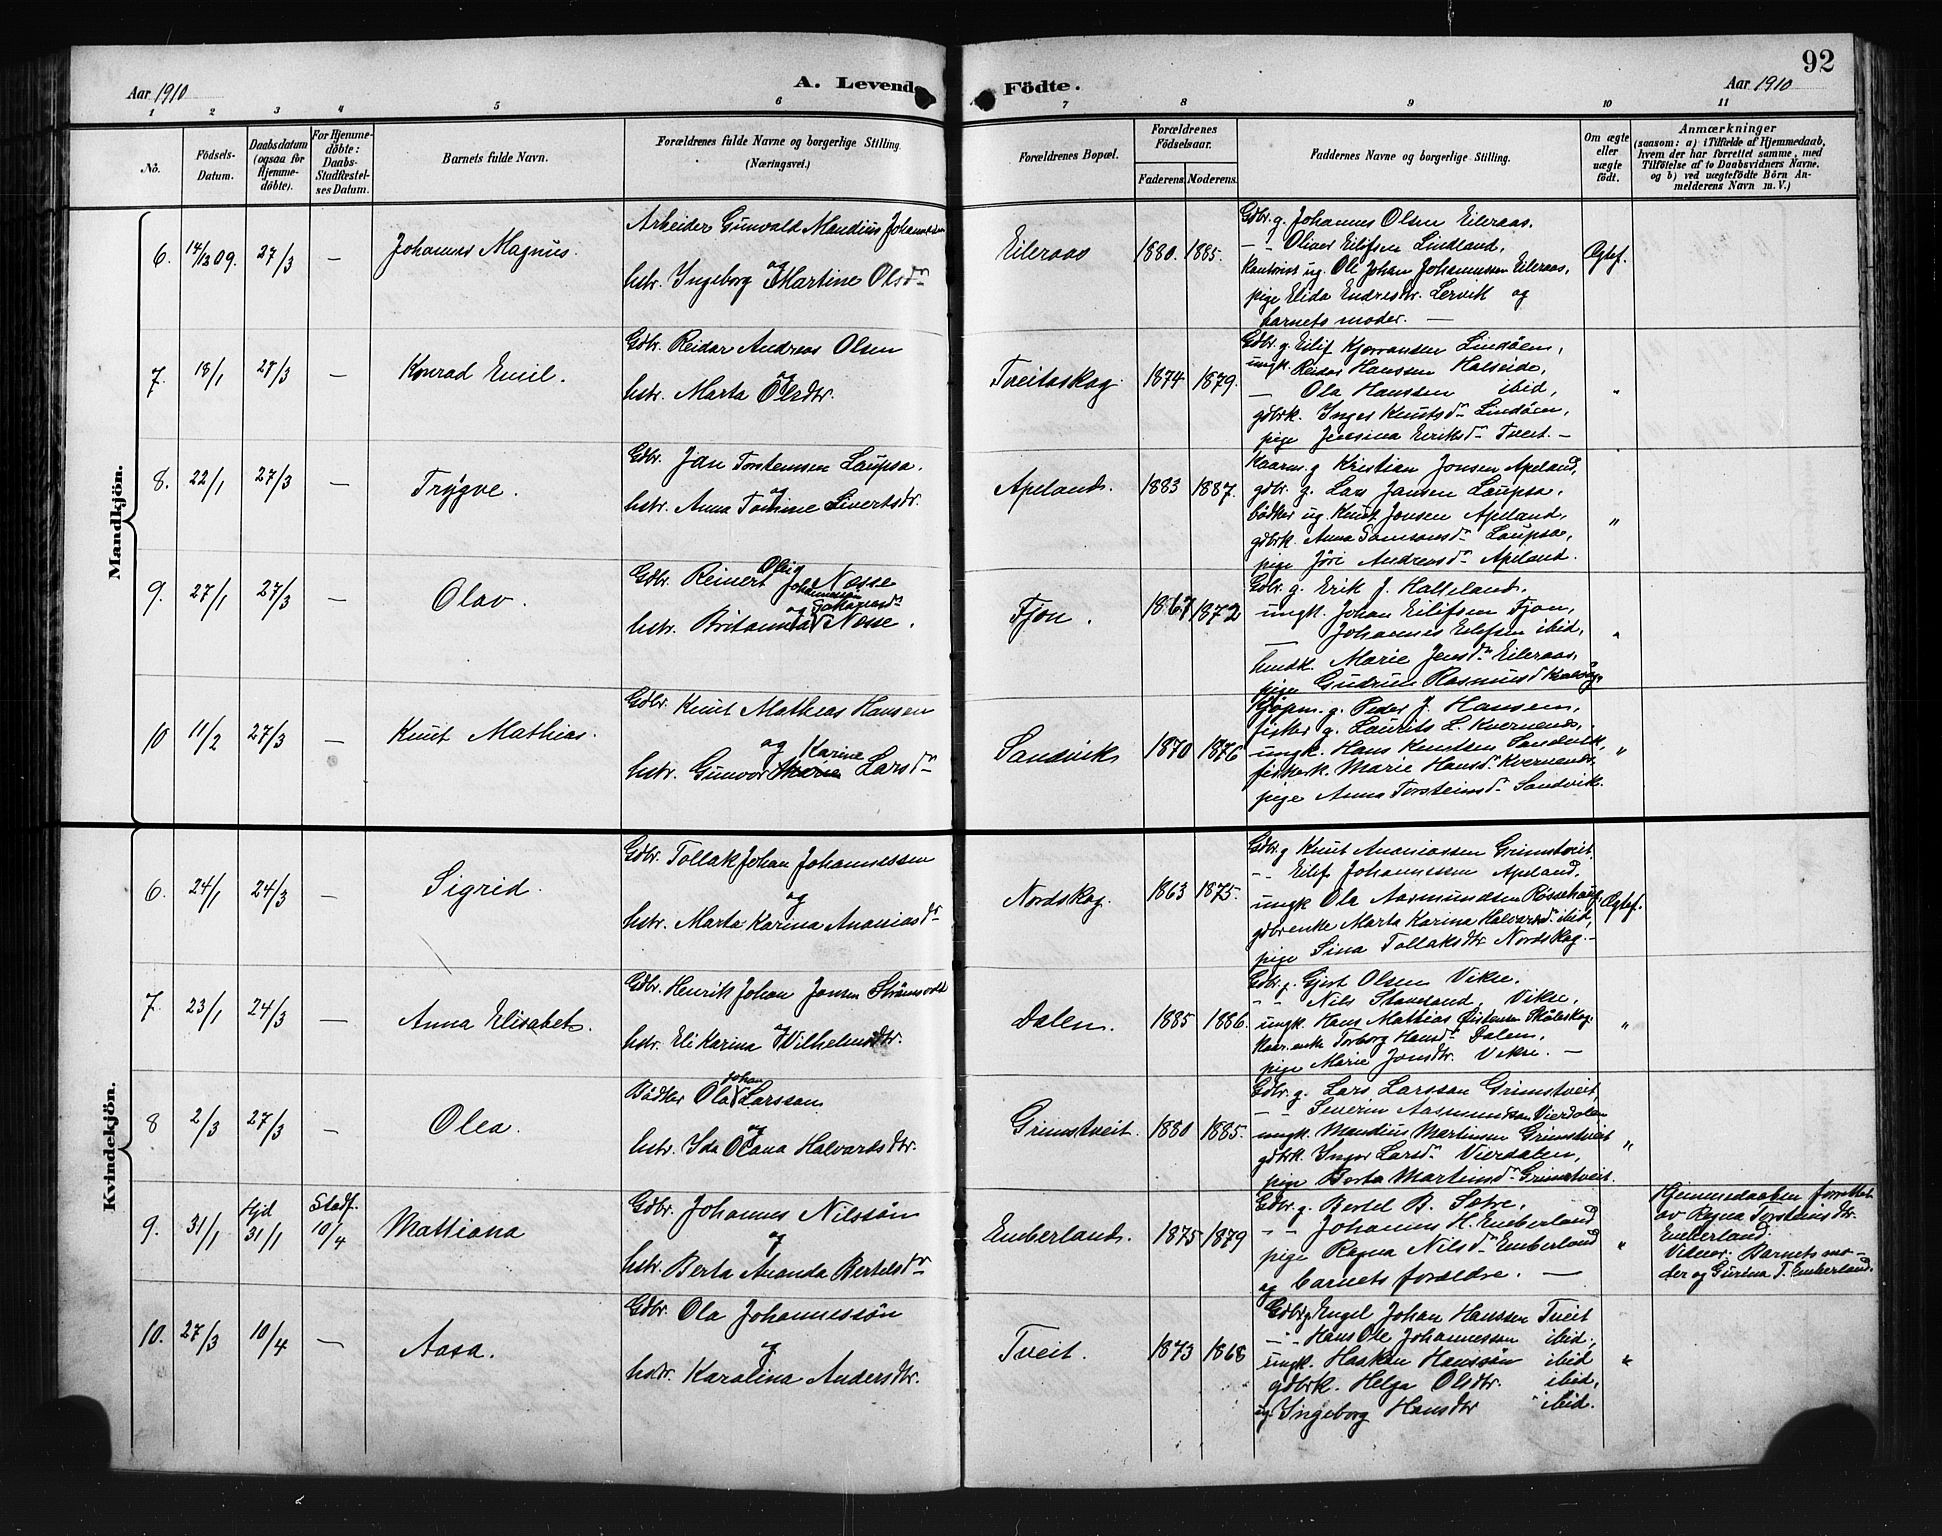 92
Aar 1910
A. Levende Födte.
Aar 1910
1 2 3 4 5 6 7 8 9 10 11
No.
Födsels-
Datum.
Daabsdatum
(ogsaa för
Hjemme-
döbte).
For Hjemme-
döbte:
Daabs-
Stadfæstel-
ses Datum.
Barnets fulde Navn.
Forældrenes fulde Navne og borgerlige Stilling.
(Næringsvei.)
Forældrenes Bopæl.
Forældrenes
Födselsaar.
Faderens. Moderens.
Faddernes Navne og borgerlige Stilling.
Om ægte
eller
uægte
födt.
Anmærkninger
(saasom: a) i Tilfælde af Hjemmedaab,
hvem der har forrettet samme, med
Tilföielse af to Daabsvidners Navne.
og b) ved uægtefödte Börn An-
melderens Navn m. V.)
Mandkjön.
6. 14/12 09. 27/3 — Johannes Magnus.
Arbeider Gunvald Mandius Johannessen
og
hstr. Ingeborg Martine Olsdr
Eileraas 1880. 1885.
Gdbr. g. Johannes Olsen Eileraas.
- - Oliver Eilifsen Lindland,
Kontorist ug. Ole Johan Johannessen Eileraas,
pige Elida Endresdtr. Lervik og
barnets moder. —
Ægtef.
7. 18/1 28/3 — Konrad Emil.
Gdbr. Reidar Andreas Olsen
og
hstr. Marta Olsdtr.
Tveitaskog. 1874 1879.
Gdbr. g. Eilif Kjerrandsen Lindöen,
ungk. Reidar Hanssen Halseide,
— Ola Hanssen ibid,
gdbrk. Inger Knutsdr Lindöen,
pige Jensina Eeriksdr Tveit. —
"
8. 22/1 27/3 — Trygve.
Gdbr. Jan Torstensen Laupsa.
og
hstr. Anna Tomine Sivertsdtr.
Apeland. 1883 1887.
Kaarm. g. Kristian Jonsen Apeland,
gdbr. g. Lars Jansen Laupsa,
bödker ug. Knut Jonsen Apeland,
gdbrk. Anna Samsonsdr Laupsa,
pige Jöri Andreasdr Apeland.
"
9. 27/1 27/3 — Olav.
Gdbr. Reinert Olvig Johannessen Næsse
og
hstr. Britannia Næsse.
Fjon. 1867 1872
Gdbr. g. Erik J. Halleland,
ungk. Johan Eilifsen Fjon,
Johannes Eilifsen ibid,
hmdk. Marie Jensdr Eileraas,
pige Gudrun Rasmusd
"
10 11/2 27/3 — Knut Mathias.
Gdbr. Knut Mathias Hansen
og Karine
hstr. Gunvor Larsdr
Sandvik 1870 1876
Kjöpm. g. Peder J. Hansen,
fisker g. Laurits L. Kvernenes,
ungk. Hans Knutsen Sandvik,
fiskerk. Marie Hansd. Kvernenes
pige Anna Torsteinsdr Sandvik.
"
Kvindekjön.
6. 24/1 24/3 — Sigrid.
Gdbr. Tollak Johan Johannessen
og
hstr. Marta Karina Ananiasdr
Nordskog. 1863 1875.
Gdbr. g Knut Ananiassen Grimstveit,
- - Eilif Johannessen Apeland,
ungk Ola Aasmundsen
gdbrenke Marta Karina Halvardsd. ibid,
pige Sina Tollaksdtr Nordskog. —
Ægtef.
7. 23/1 24/3 — Anna Elisabet.
Gdbr. Henrik Johan Jonsen Strömsvold
og
hstr. Eli Karina Vilhelmsdtr.
Dalen. 1885 1886.
Gdbr. g. Gjert Olsen Vikse,
- - Nils Staveland, Vikse,
ungk. Hans Mathias Östensen Skåleskog.
Kaar.enke Torborg Hansdr Dalen,
pige Marie Jonsdtr. Vikse. —
"
8 2/3 27/3 — Olea.
Bödker Ola Johan Larssen
og
hstr. Ida Oliana Halvardsdtr.
Grimstveit. 1880 1885.
Gdbr. g. Lars Larsson Grimstveit,
- - Severin Aasmundsson Vierdalen
ungk. Mandius Martinsen Grimstveit
gdbrk. Inger Larsdr Vierdalen,
pige Berta Martinsdr Grimstveit.
"
9. 31/1 Hjd 31/1 Stadf. 10/4 Mattiana
Gdbr. Johannes Nilssön
og
hstr. Berta Ananda Bertelsdr
Emberland. 1875 1879
Gdbr. g. Bertel B. Sætre,
- - Johannes H. Emberland
pige Ragna Nilsdr Emberland
og barnets forældre. —
"
Hjemmedaaben forrettet
av Ragna Torsteinsdtr.
Emberland.
Vidner: Barnets mo-
der og Gurina T. Emberland.
10. 27/3 10/4 — Aasa.
Gdbr. Ola Johannessön
og
hstr. Karolina Andersdtr.
Tveit. 1873 1868
Gdbr g. Engel Johan Hanssen Tveit
- - Hans Ole Johannessen ibid,
ungk. Haaken Hanssön ibid
gdbrk. Helga Olsdtr. ibid,
ug. Ingeborg Hansdtr ibid.
"